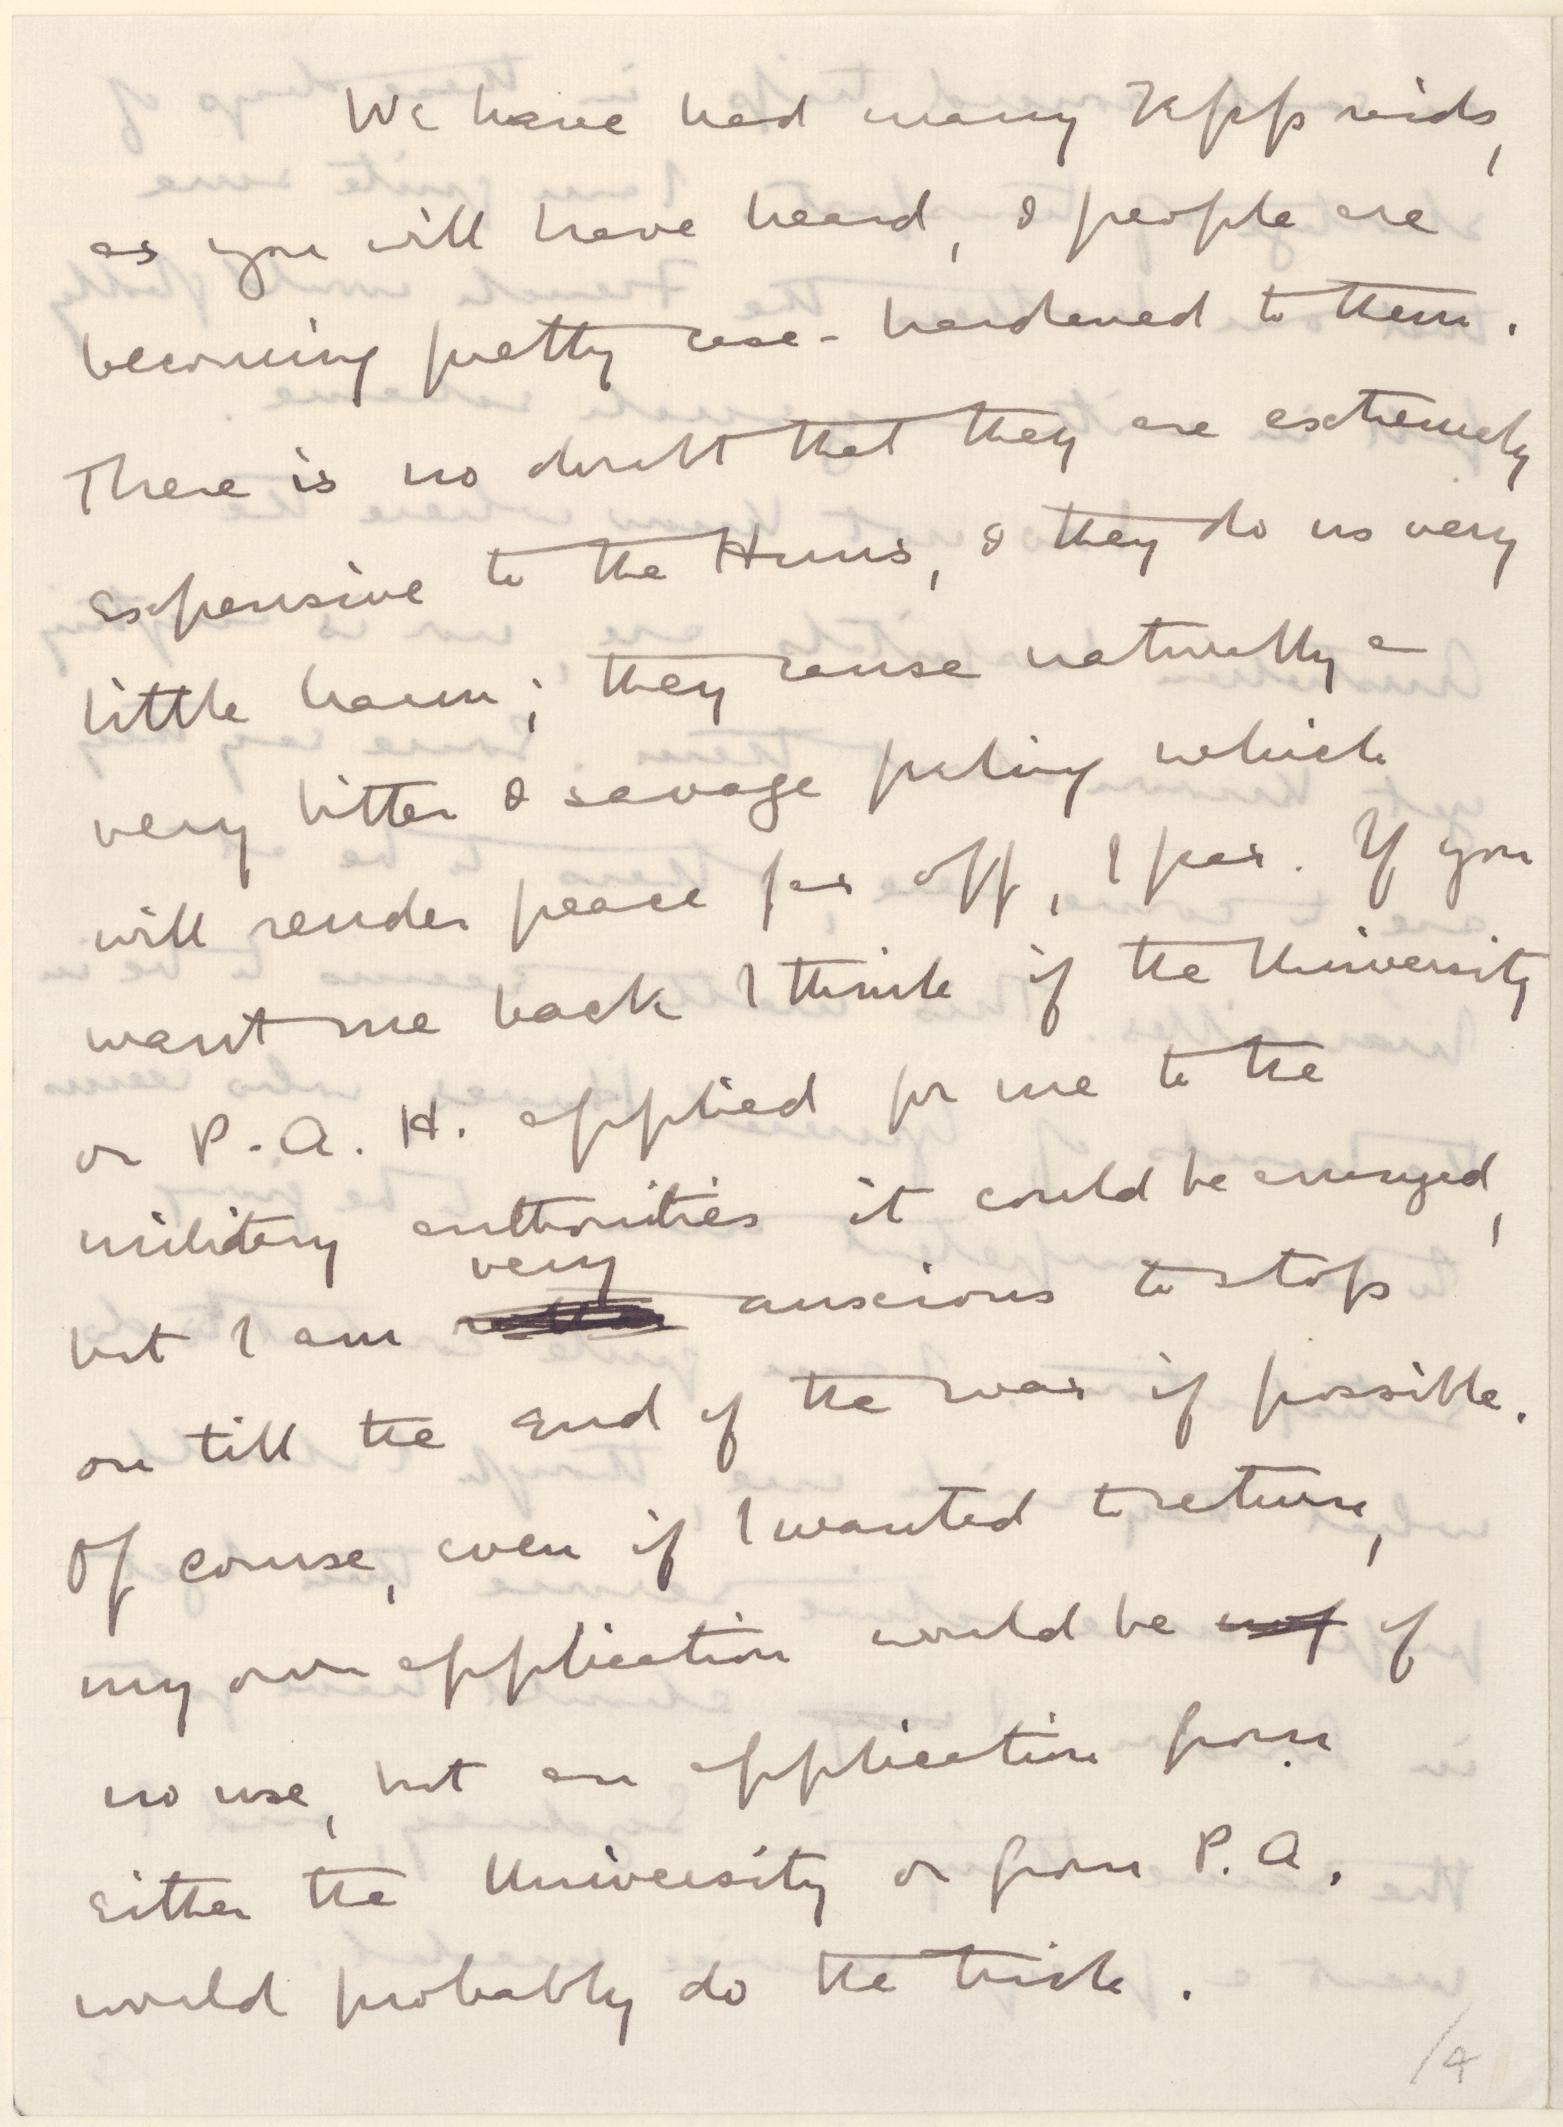 We have had many Zepp raids,
as you will have heard, & people are
becoming pretty case-hardened to them.
There is no doubt that they are extremely
expensive to the Huns, & they do us very
little harm; they cause naturally a
very bitter & savage feeling which
will render peace far off, I fear. If you
want me back I think if the University
or P.A.H. applied for me to the
military authorities it could be arranged,
very
but I am anxious to stop
on till the end of the war if possible.
Of course, even if I wanted to return,
my own application would be of
no use, but an application from
either the University or from P.A.
would probably do the trick.
/4